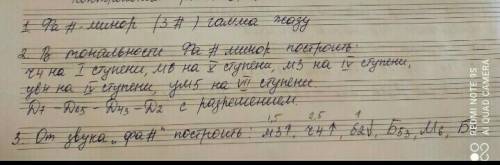 1. Фа #-минор (3#) гамма
2. В тональности Фа # минор построить:
ч4 на I ступени, м6 на V ступени, м3 на IV ступени,
ув4 на IV ступени, ум5 на VII ступени.
Д7 - Д65 - Д43 - Д2 с разрешением.
1,5 2,5 1
3. От звука "фа#" построить: м3↑, ч4↑, б2↓, Б53, М6, Б
REDMI NOTE 9S
AI QUAD CAMERA